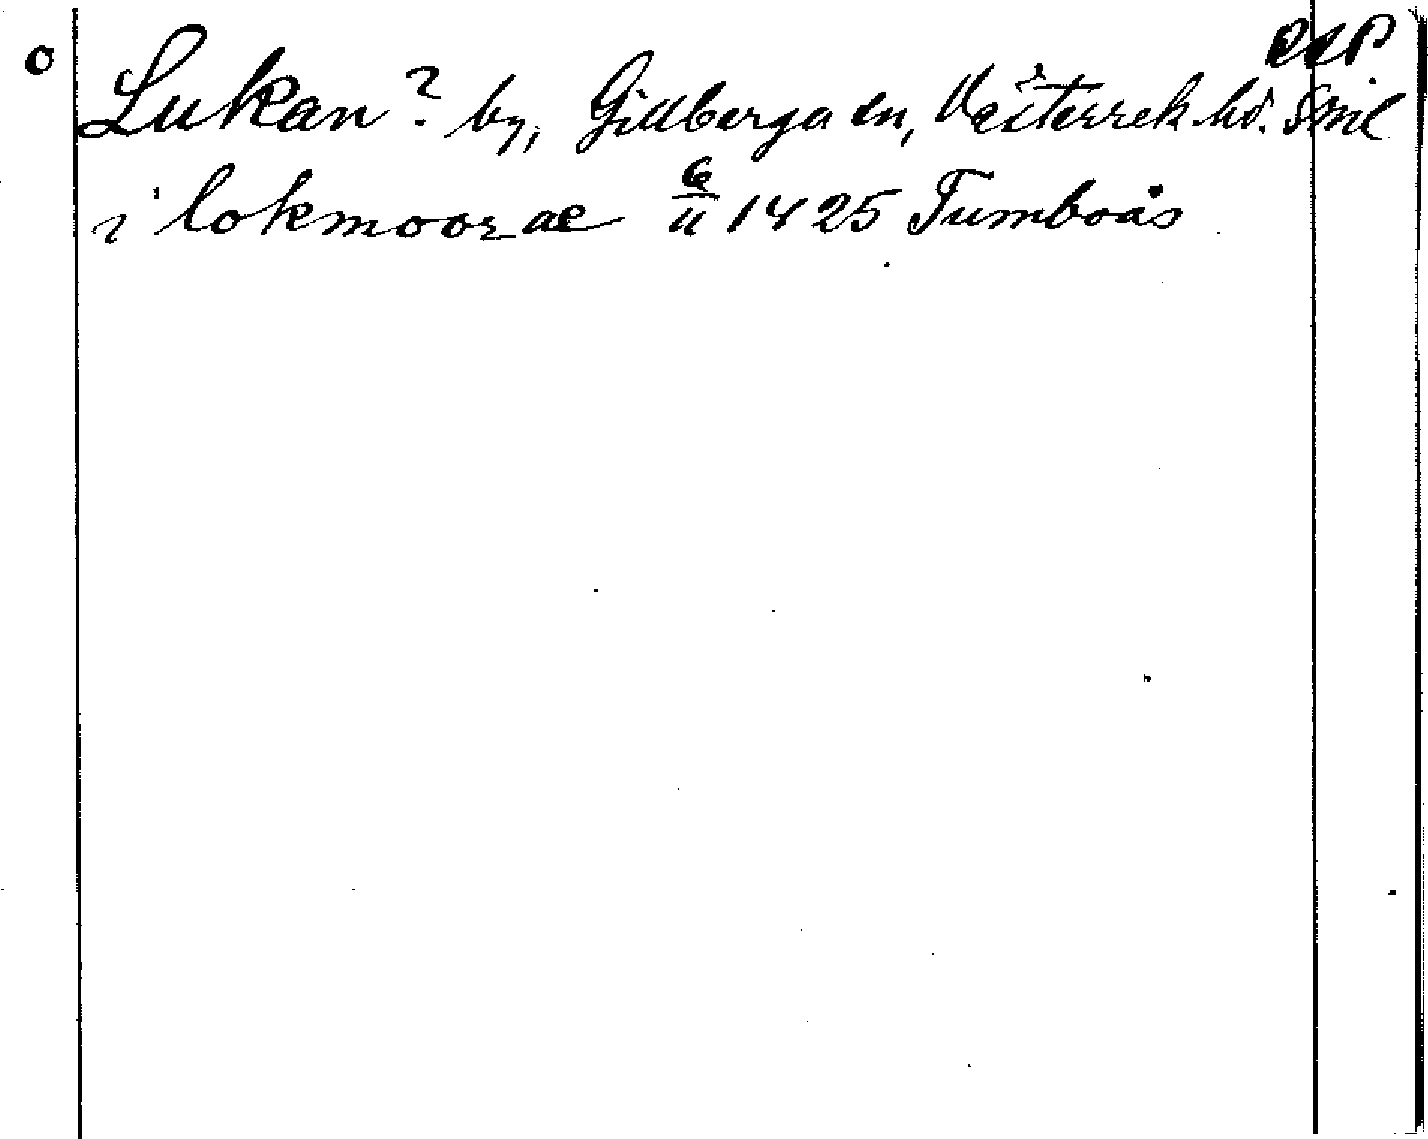 o
Lukan? by, Gillberga sn, Västerrek. hd. Sml
i lokmoorae 6/11 1425 Tumboås